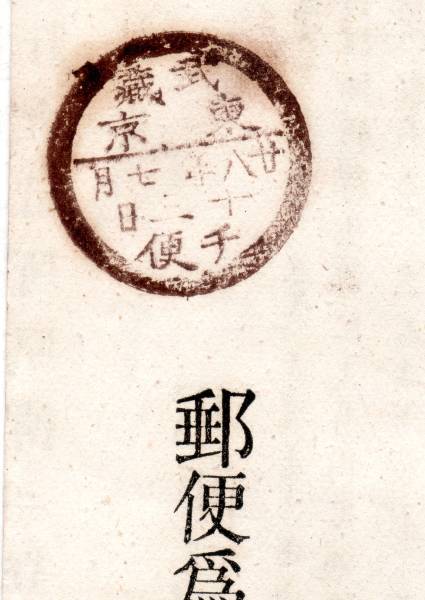 武藏
東京
廿八年七月
十二日
チ便
郵便爲